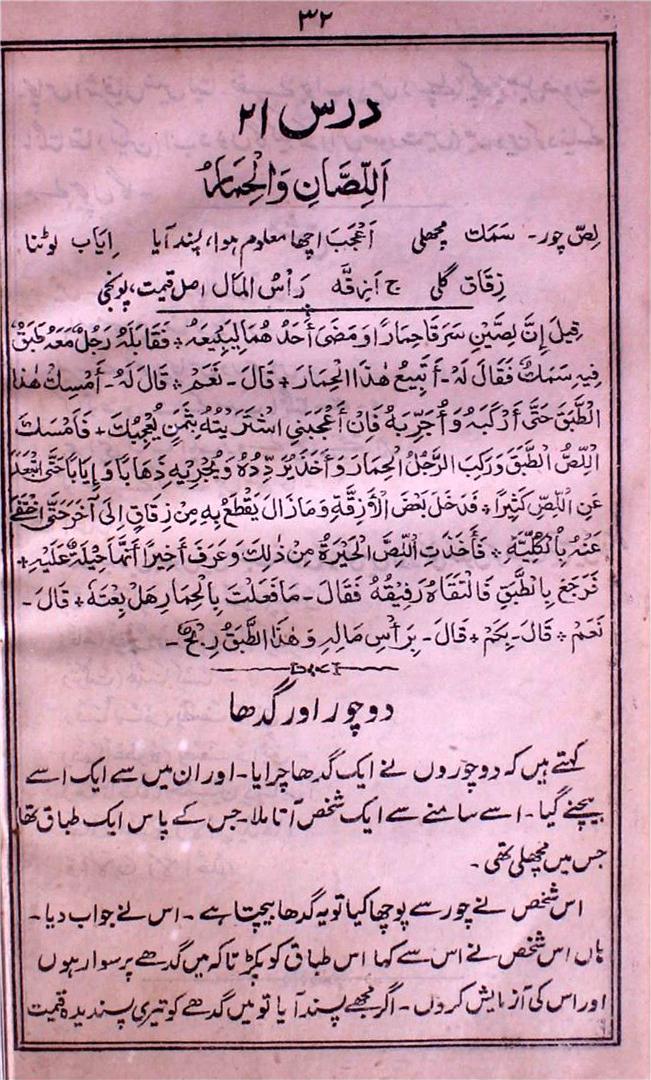 ۳۲
درس ۲۱
اَللِّصَّانِ وَالْحِمَارُ
لِصّ چور۔ سَمَك مچھلی اَعْجَبَ اچھا معلوم ہوا، پسند آیا اِیَاب لوٹنا
زِقَاق گلی ج اَزِقَّه رَأْسُ الْمَال اصل قیمت، پونجی
قِيلَ اِنَّ لِصَّيْنِ سَرَقَا حِمَارًا وَمَضَى أَحَدُ هُمَا لِيَبِيْعَهُ ÷ فَقَابَلَهُ رَجُلٌ مَعَهُ طَبَقٌ
فِيهِ سَمَكٌ فَقَالَ لَهُ۔ أَتَبِيعُ هٰذَا الْحِمَارَ ÷ قَالَ۔ نَعَمْ ÷ قَالَ لَهُ۔ أَمْسِكْ هٰذَا
الطَّبَقَ حَتّٰى أَرْكَبَهُ وَأُجَرِّبَهُ فَاِنْ أَعْجَبَنِي اشْتَرَيْتُهُ بِثَمَنٍ يُعْجِبُكَ ÷ فَاَمْسَكَ
اللِّصُّ الطَّبَقَ وَرَكِبَ الرَّجُلُ الْحِمَارَ وَأَخَذَ يُرَدِّدُهُ وَيُجْرِيهِ ذَهَابًا وَاِيَابًا حَتَّى ابْتَعَدَ
عَنِ اللِّصِّ كَثِيْرًا ÷ فَدَخَلَ بَعْضَ الْأَزِقَّةِ وَمَازَالَ يَقْطَعُ بِهِ مِنْ زِقَاقٍ اِلٰى آخَرَ حَتَّى اخْتَفٰى
عَنْهُ بِالْكُلِّيَّةِ ÷ فَأَخَذَتِ اللِّصَّ الْحَيْرَةُ مِنْ ذٰلِكَ وَعَرَفَ أَخِيرًا أَنَّهَا حِيلَةٌ عَلَيْهِ ÷
فَرَجَعَ بِالطَّبَقِ فَالْتَقَاهُ رَفِيْقُهُ فَقَالَ۔ مَا فَعَلْتَ بِالْحِمَارِ هَلْ بِعْتَهُ ÷ قَالَ۔
نَعَمْ ÷ قَالَ۔ بِكَمْ ÷ قَالَ۔ بِرَأْسِ مَالِهِ وَهٰذَا الطَّبَقُ رِبْحٌ۔
دو چور اور گدھا
کہتے ہیں کہ دو چوروں نے ایک گدھا چرایا۔ اور ان میں سے ایک اسے
بیچنے گیا۔ اسے سامنے سے ایک شخص آتا ملا۔ جس کے پاس ایک طباق تھا
جس میں مچھلی تھی۔
اس شخص نے چور سے پوچھا کیا تو یہ گدھا بیچتا ہے۔ اس نے جواب دیا۔
ہاں اس شخص نے اس سے کہا اس طباق کو پکڑ تاکہ میں گدھے پر سوار ہوں
اور اس کی آزمایش کر لوں۔ اگر مجھے پسند آیا تو میں گدھے کو تیری پسندیدہ قیمت